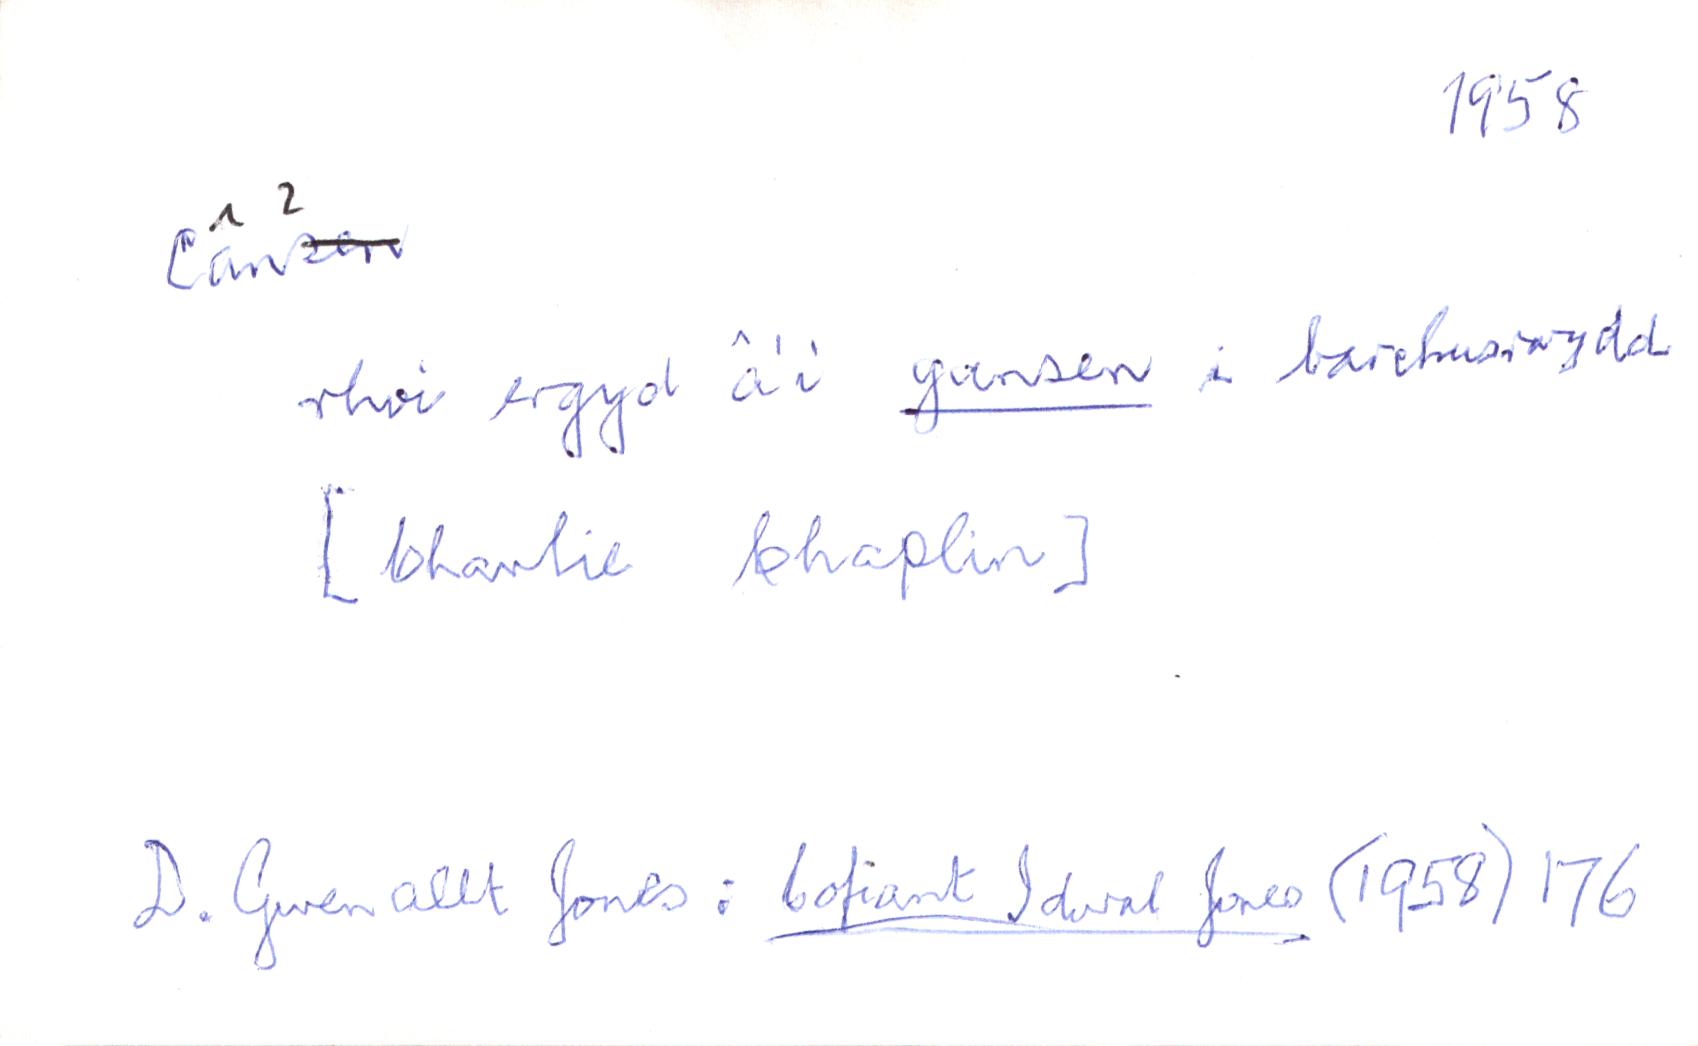 1958
Cân² sen
rhoi ergyd â'i gansen i barchusrwydd
[Charlie Chaplin]
D. Gwenallt Jones: Cofiant Idwal Jones (1958) 176